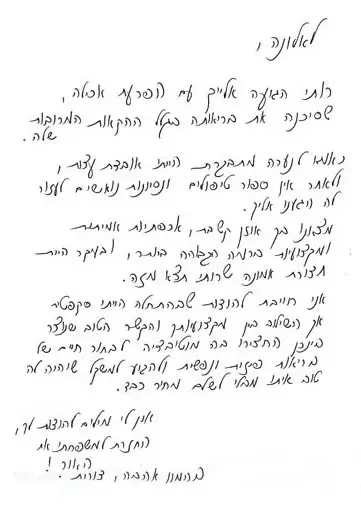 לאלונה,
רותי הגיעה אלייך עם הפרעת אכילה,
שסיכנה את בריאותה בגלל ההקאות המרובות
שלה.
כאמא לנערה מתבגרת הייתי אובדת עצות,
ולאחר אין ספור טיפולים ונסיונות נואשים לעזור
לה הגענו אליך.
מצאנו בך אוזן קשבת, אכפתיות אמיתית
ומקצועיות ברמה הגבוהה ביותר, ובעיקר היית
חדורת אמונה שרותי תצא מזה.
אני חייבת להודות שבהתחלה הייתי סקפטית
אך השילוב בין מקצועיותך והקשר הטוב שנוצר
ביניכן החזירו בה מוטיבציה לבחור חיים של
בריאות פיזית ונפשית ולהגיע למשקל שיהיה לה
טוב איתו מבלי לשלם מחיר כבד.
אין לי מילים להודות לך,
החזרת למשפחתי את
האור!
בהמון אהבה, דורית.